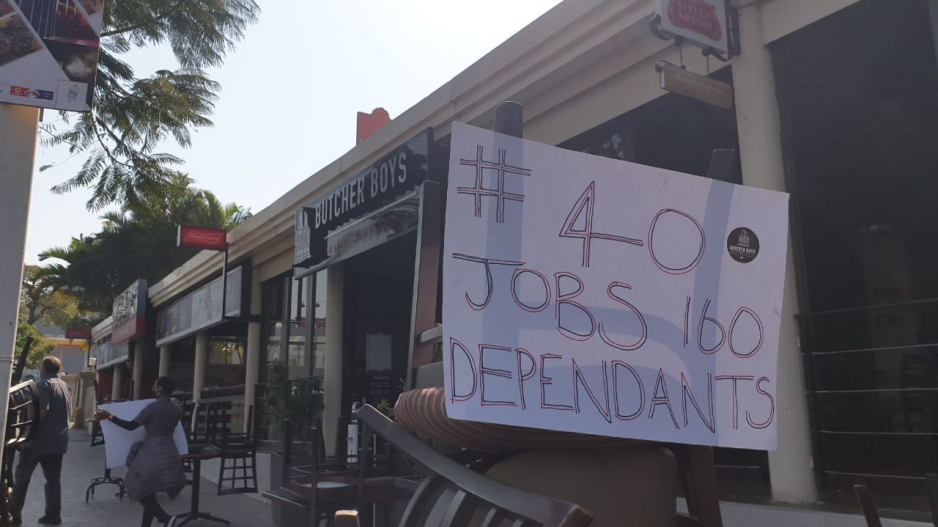 STELLA
ARTOIS
BUTCHER BOYS
# 40
JOBS 160
DEPENDANTS
BUTCHER BOYS